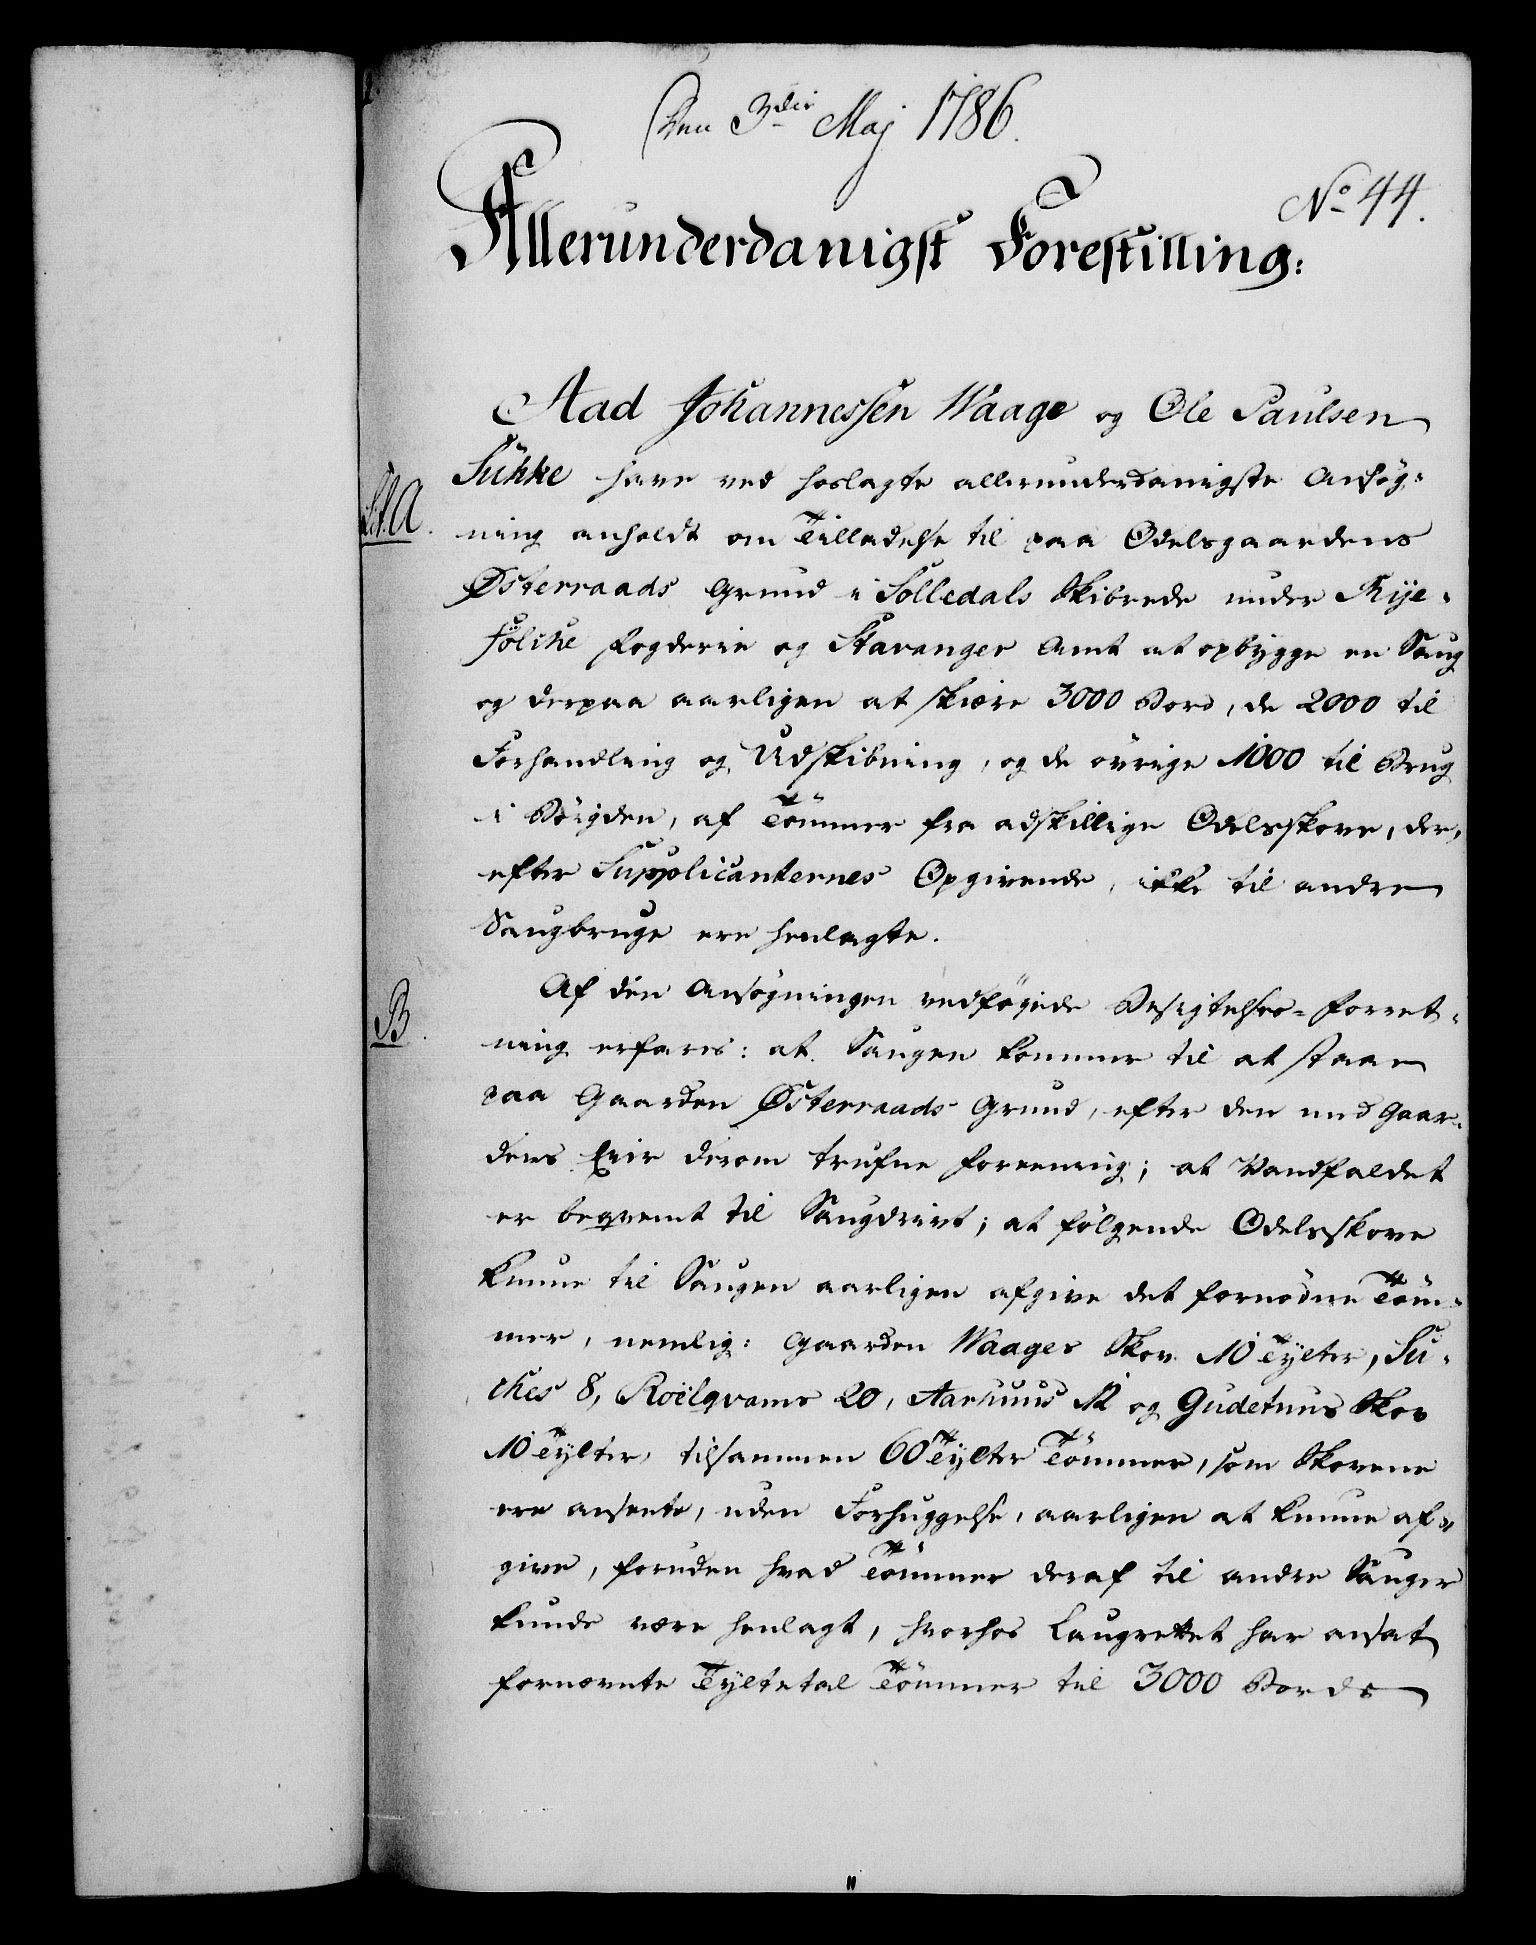 Den 3die Maj 1786.
No 44.
Allerunderdanigst Forestilling:
Aad Johannessen Waage og Ole Paulsen
Sukke have ved hoslagte allerunderdanigste Ansøg-
Lit. A.
ning anholdt om Tilladelse til paa Odelsgaardens
Østerraads Grund i Solledals Skibrede under Rye-
fölche Fogderie og Stavanger Amt at opbygge en Saug
og derpaa aarligen at skiære 3000 Bord, de 2000 til
Forhandling og Udskibning, og de övrige 1000 til Brug
i Böigden, af Tömmer fra adskillige Odelsskove, der,
efter Supplicanternes Opgivende, ikke til andre
Saugbruge ere henlagte.
Af den Ansøgningen vedføyede Besigtelses-Forret-
B.
ning erfares: at Saugen kommer til at staae
paa Gaarden Østerraads Grund, efter den med Gaar-
dens Eier derom trufne Foreening; at Vandfaldet
er beqvemt til Saugdrivt; at følgende Odelsskove
kunne til Saugen aarligen afgive det fornödne Töm-
mer, nemlig: Gaarden Waages Skov 10 Tylter, Su-
ckes 8, Roelqvams 20, Aarhuus 12 og Gudetuns Skov
10 Tylter, tilsammen 60 Tylter Tömmer, som Skovene
ere ansente, uden Forhuggelse, aarligen at kunne af-
give, foruden hvad Tömmer deraf til andre Sauger
kunde være henlagt, hvorhos Laugrettet har ansat
fornævnte Tyltetal Tömmer til 3000 Bords